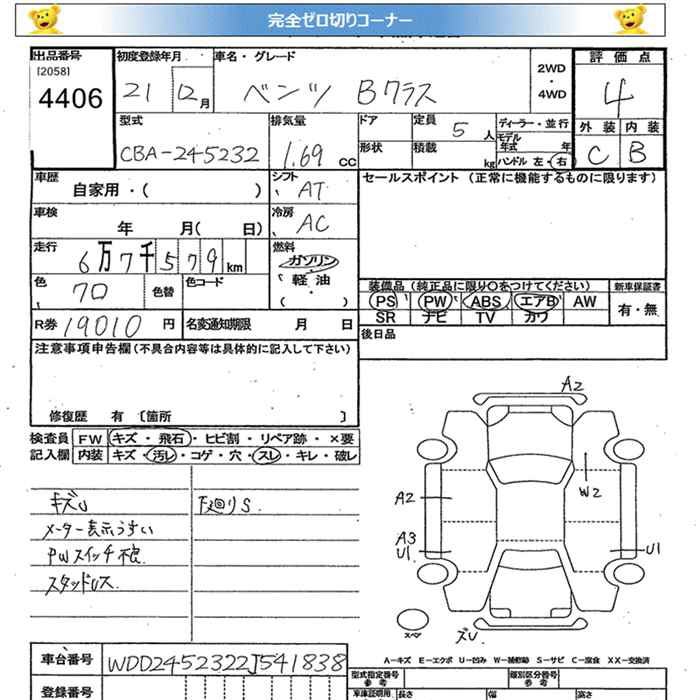 完全ゼロ切りコーナー
出品番号
[2058]
4406
初度登録年月
21 12月
車名・グレード
ベンツ Bクラス
2WD
・
4WD
評価点
4
外装 内装
C B
型式
CBA-245232
排気量
1.69 cc
ドア
形状
定員 5 人
積載 kg
ディーラー・並行
モデル年式 年
ハンドル 左・右
車歴
自家用・( )
シフト
AT
セールスポイント (正常に機能するものに限ります)
車検
年 月( 日)
冷房
AC
走行
6万7千579km
燃料
ガソリン
・
軽油
( )
色
クロ
色替
色コード
装備品 (純正品に限り○をつけてください)
新車保証書
PS PW ABS エアB AW
SR ナビ TV カワ
有・無
R券 19010 円
名変通知期限 月 日
後日品
注意事項申告欄 (不具合内容等は具体的に記入して下さい)
修復歴 有 〔箇所 〕
検査員
記入欄
FW キズ・飛石・ヒビ割・リペア跡・×要
内装 キズ・汚レ・コゲ・穴・スレ・キレ・破レ
キズU
メーター表示うすい
PWスイッチ穴
スタッドレス
下廻りS
A2
W2
A2
A3
U1
U1
スペア
ズU
A―キズ E―エクボ U―凹み W―補修跡 S―サビ C―腐食 XX―交換済
車台番号
WDD2452322J541838
登録番号
型式指定番号
参考
類別区分番号
参考
車庫証明用
長さ
幅
高さ